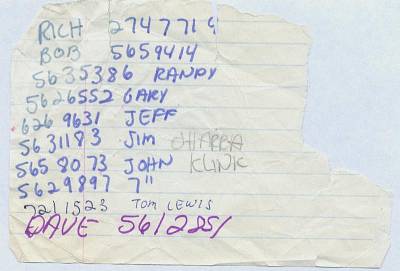 RICH 2747719
BOB 5659414
5635386 RANDY
5626552 GARY
626 9631 JEFF
5631183 JIM CHIARBA
565 8073 JOHN KLINIC
5629897 7"
7211523 TOM LEWIS
DAVE 5612251